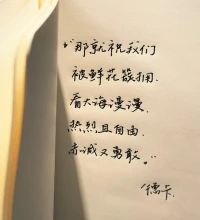 “那就祝我们
被鲜花簇拥.
看大海漫漫.
热烈且自由.
赤诚又勇敢。”
德卡.